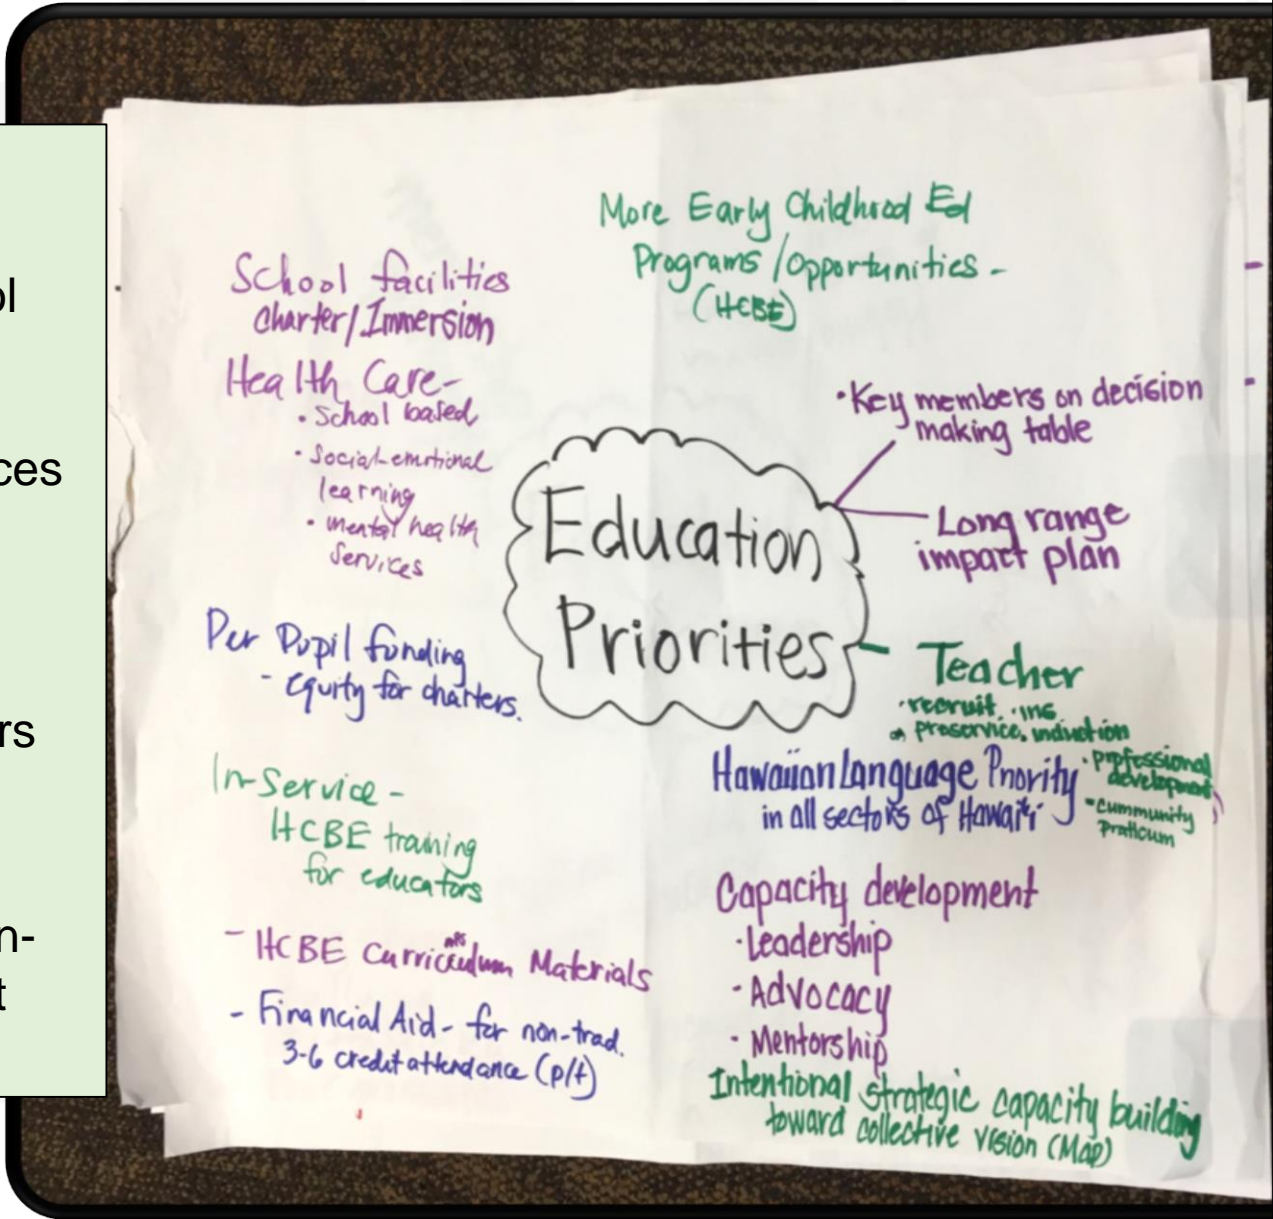 ol
ces
rs
n-
t
More Early Childhood Ed
Programs/Opportunities -
(HCBE)
School facilities
Charter/Immersion
Health Care-
• School based
• Social-emotional
learning
• mental health
Services
Per Pupil funding
- equity for charters.
In-Service -
HCBE training
for educators
- HCBE Curriculum Materials
- Financial Aid - for non-trad.
3-6 credit attendance (p/t)
Education
Priorities
• Key members on decision
making table
Long range
impact plan
- Teacher
• recruit. ing
preservice, induction
• professional
development
• Community
Hawaiian Language Priority
in all sectors of Hawai'i
Capacity development
• Leadership
• Advocacy
• Mentorship
Intentional strategic capacity building
toward collective vision (Map)